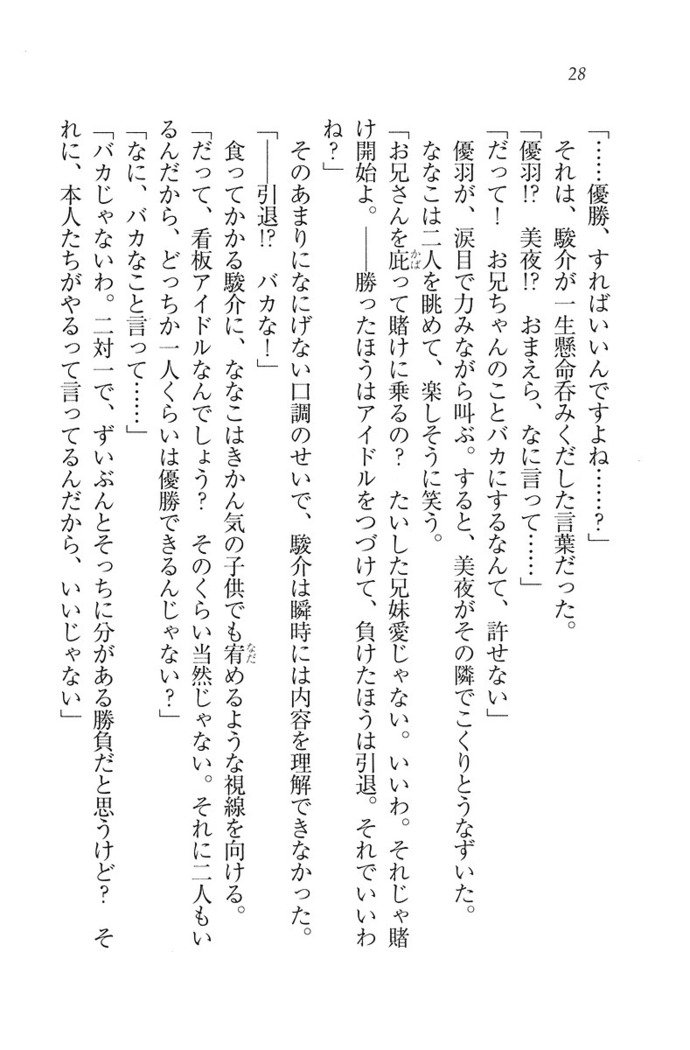 28
「……優勝、すればいいんですよね……?」
それは、駿介が一生懸命呑みくだした言葉だった。
「優羽!? 美夜!? おまえら、なに言って……」
「だって! お兄ちゃんのことバカにするなんて、許せない」
優羽が、涙目で力みながら叫ぶ。すると、美夜がその隣でこくりとうなずいた。
ななこは二人を眺めて、楽しそうに笑う。
「お兄さんを庇って賭けに乗るの? たいした兄妹愛じゃない。いいわ。それじゃ賭
かば
け開始よ。――勝ったほうはアイドルをつづけて、負けたほうは引退。それでいいわ
ね?」
そのあまりになにげない口調のせいで、駿介は瞬時には内容を理解できなかった。
「――引退!? バカな!」
食ってかかる駿介に、ななこはきかん気の子供でも宥めるような視線を向ける。
なだ
「だって、看板アイドルなんでしょう? そのくらい当然じゃない。それに二人もい
るんだから、どっちか一人くらいは優勝できるんじゃない?」
「なに、バカなこと言って……」
「バカじゃないわ。二対一で、ずいぶんとそっちに分がある勝負だと思うけど? そ
れに、本人たちがやるって言ってるんだから、いいじゃない」